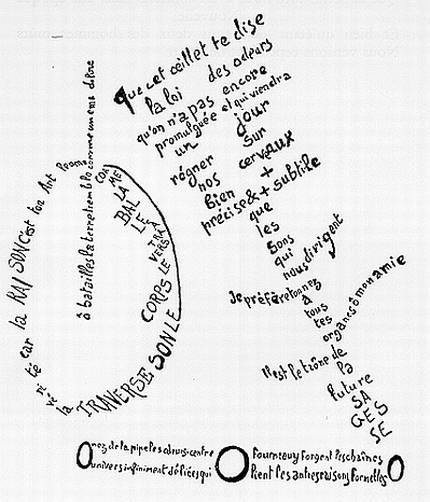 ô batailles la terre tremble comme une mandoline
COMME
LA
BAL
LE
À
TRA
VERS
LE
CORPS
LE SON
TRAVERSE
la vérité car la RAISON c'est ton Art Femme
que cet œillet te dise
la loi des odeurs
qu'on n'a pas encore
promulguée et qui viendra
un jour
régner sur
nos cerveaux
bien +
précise & + subtile
que
les
sons
qui
nous dirigent
Je préfère ton nez
à
tous
tes
organes ô mon amie
Il est le trône de
la
future
SA
GES
SE
O nez de la pipe les odeurs-centre O fourneau y forgent les chaînes O
univers infiniment déliées qui lient les autres raisons formelles